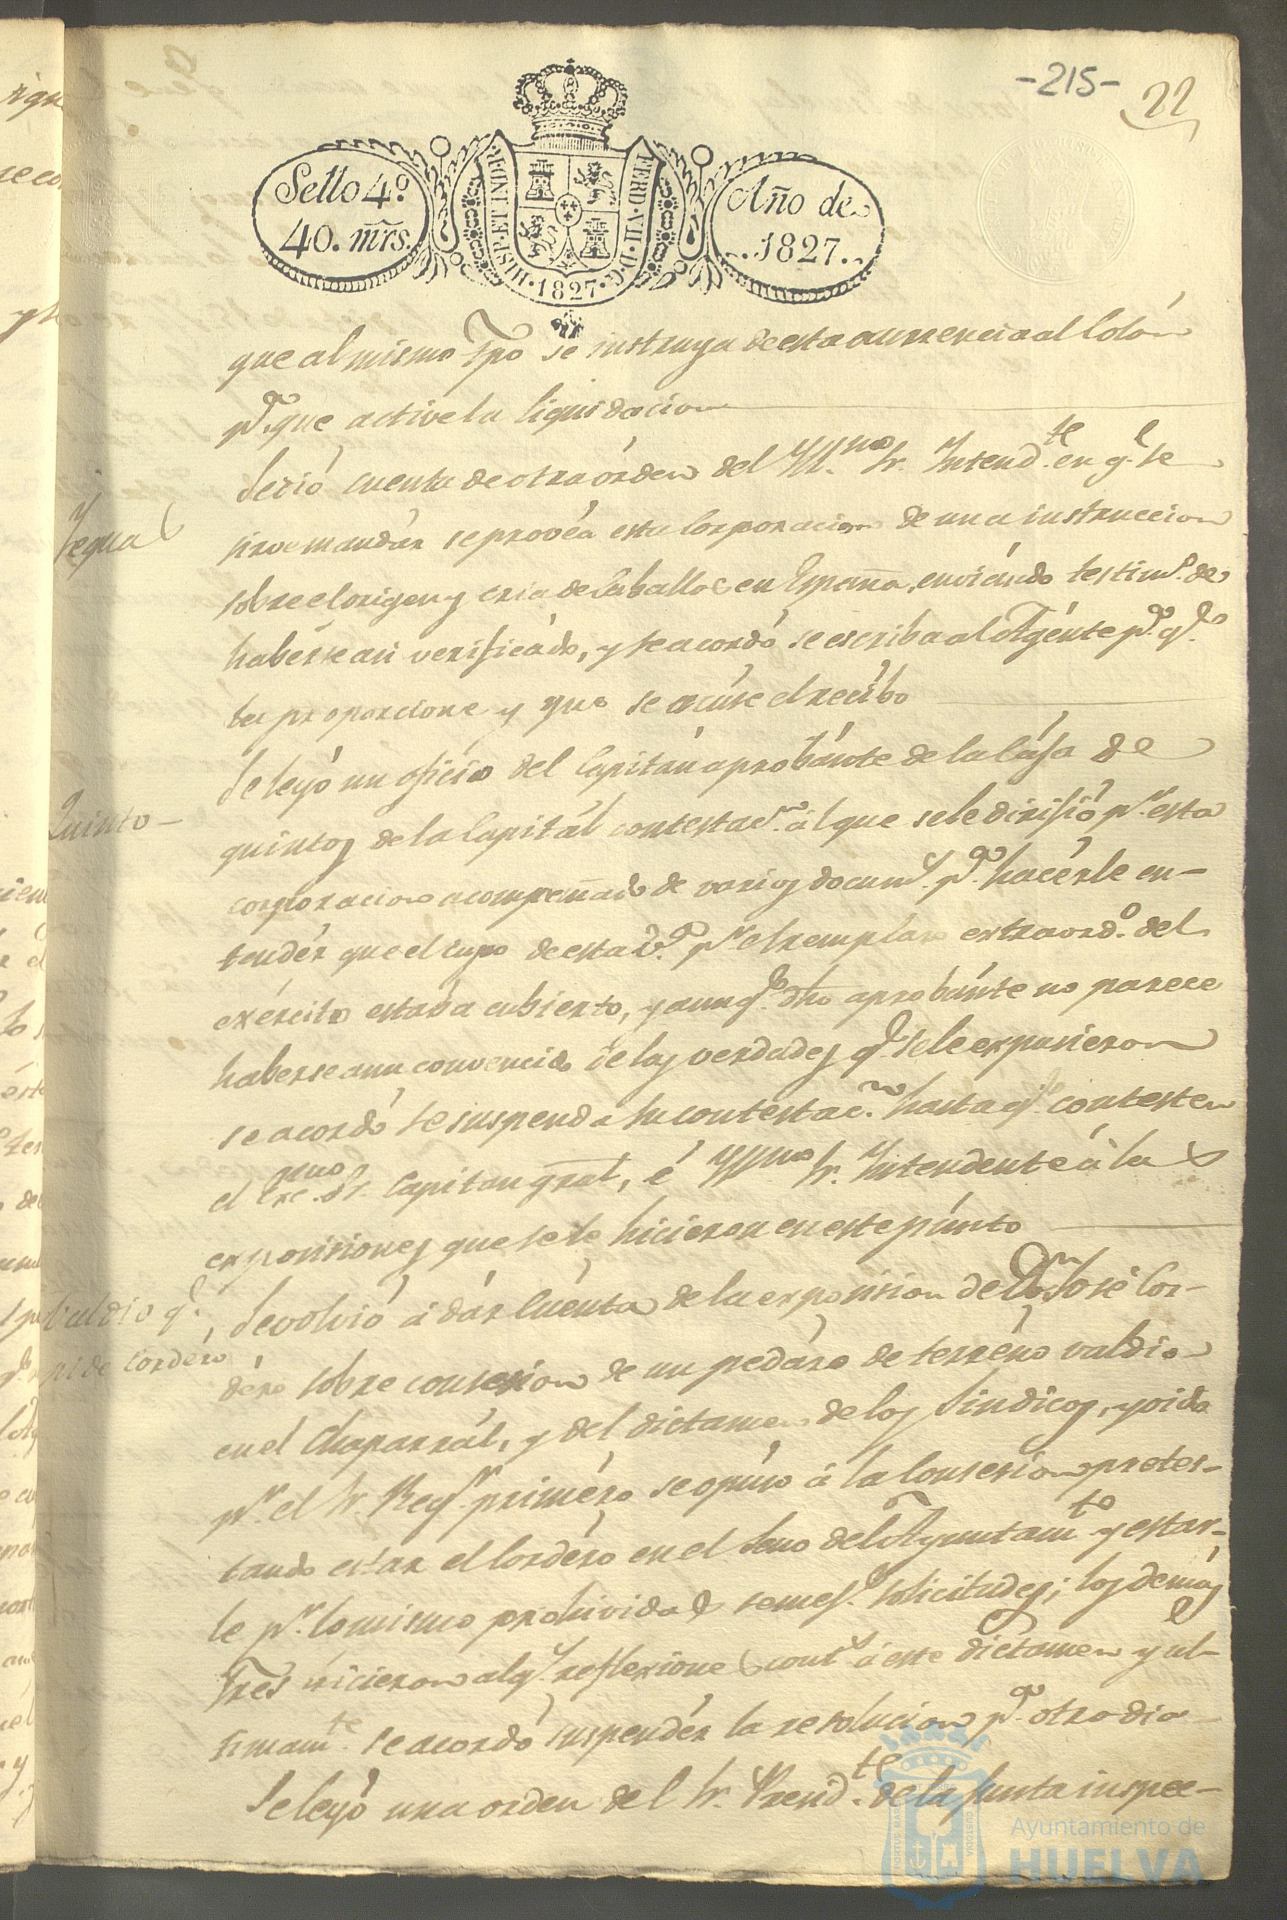 -215-
22
Sello 4.º
40. mrs.
HISP. ET IND. R.
FERD. VII. D. G.
1827
Año de
1827.
que al mismo tpo se instruya de esta ocurrencia al Colón
p.ª que active la liquidacion
Yegua
Se dió cuenta de otra órden del Yll.mo Sr. Yntend.te en q.e se
sirve mandár se provéa esta Corporacion de una instruccion
sobre el origen y cria de Caballos en España, enviándo testim.º de
habérse asi verificádo, y se acordó se escriba al Agénte p.ª q.e
la proporcione y que se acúse el recibo
Quinto
Se leyó un oficio del Capitán aprobánte de la Cása de
quintos de la Capitál contestac.n ál que se le dirijió p.r esta
corporacion acompañado de varios docum.s p.ª hacérle en-
tendér que el cupo de esta V.ª p.r el remplaso extraord.º del
exército estaba cubierto, y aunq.e dho aprobánte no parece
haberse aun convencido de las verdades q.e se le expusieron
se acordó se suspenda su contestac.n hasta q.e contesten
el Exc.mo Sr. Capitan gral, é Yll.mo Sr. Yntendente á las
exposiciones que se le hicieron en este púnto
Valdio q.e
pide Cordéro
Se volvió á dár Cuénta de la exposision de D.n José Cor-
déro sobre consesion de un pedáso de terréno valdio
en el Chaparrál, y del dictamen de los Sindicos, y oido
p.r el Sr. Reg.r priméro se opuso á la Consesion protes-
tando estar el Cordéro en el Seno del Ayuntam.to y estar-
le p.r lo mismo prohividas semej.s solicitudes; los demás
Sres hicieron alg.s reflexiones cont.s á este dictamen y ul-
timam.te se acordó suspendér la resolucion p.ª otro dia
Se leyó una orden del Sr. Presid.te de la Junta inspec-
Ayuntamiento de
HUELVA